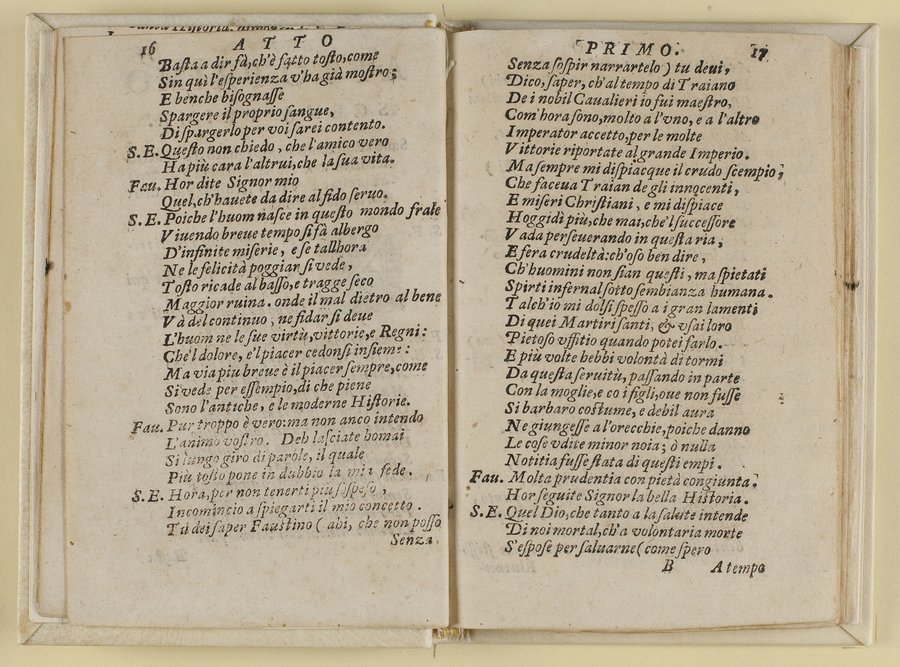 16 ATTO
Baſta a dir fà, ch'è fatto toſto, come
Sin quì l'eſperienza v'ha già moſtro;
E benche biſognaſſe
Spargere il proprio ſangue,
Di ſpargerlo per voi ſarei contento.
S.E. Queſto non chiedo, che l'amico vero
Ha più cara l'altrui, che la ſua vita.
Fau. Hor dite Signor mio
Quel, ch'hauete da dire al fido ſeruo.
S.E. Poiche l'huom naſce in queſto mondo frale
Viuendo breue tempo ſi fà albergo
D'infinite miſerie, e ſe tallhora
Ne le felicità poggiar ſi vede,
Toſto ricade al baſſo, e tragge ſeco
Maggior ruina. onde il mal dietro al bene
Và del continuo, ne fidar ſi deue
L'huom ne le ſue virtù, vittorie, e Regni:
Che'l dolore, e'l piacer cedonſi inſieme:
Ma via piu breue è il piacer ſempre, come
Si vede per eſſempio, di che piene
Sono l'antiche, e le moderne Hiſtorie.
Fau. Pur troppo è vero: ma non anco intendo
L'animo voſtro. Deh laſciate homai
Sì lungo giro di parole, il quale
Più toſto pone in dubbio la mia fede.
S.E. Hora, per non tenerti piu ſoſpeſo,
Incomincio a ſpiegarti il mio concetto.
Tù dei ſaper Fauſtino (ahi, che non poſſo
Senza
PRIMO. 17
Senza ſoſpir narrartelo) tu deui,
Dico, ſaper, ch'al tempo di Traiano
De i nobil Caualieri io fui maeſtro,
Com'hora ſono, molto a l'vno, e a l'altro
Imperator accetto, per le molte
Vittorie riportate al grande Imperio.
Ma ſempre mi diſpiacque il crudo ſcempio,
Che faceua Traian de gli innocenti,
E miſeri Chriſtiani, e mi diſpiace
Hoggidì più, che mai, che'l ſucceſſore
Vada perſeuerando in queſta ria,
E fera crudeltà: ch'oſo ben dire,
Ch'huomini non ſian queſti, ma ſpietati
Spirti infernal ſotto ſembianza humana.
Talch'io mi dolſi ſpeſſo a i gran lamenti
Di quei Martiri ſanti, & vſai loro
Pietoſo vffitio quando potei farlo.
E più volte hebbi volontà di tormi
Da queſta ſeruitù, paſſando in parte
Con la moglie, e co i figli, oue non fuſſe
Sì barbaro coſtume, e debil aura
Ne giungeſſe a l'orecchie, poiche danno
Le coſe vdite minor noia; ò nulla
Notitia fuſſe ſtata di queſti empi.
Fau. Molta prudentia con pietà congiunta.
Hor ſeguite Signor la bella Hiſtoria.
S.E. Quel Dio, che tanto a la ſalute intende
Di noi mortal, ch'a volontaria morte
S'eſpoſe per ſaluarne (come ſpero
B A tempo